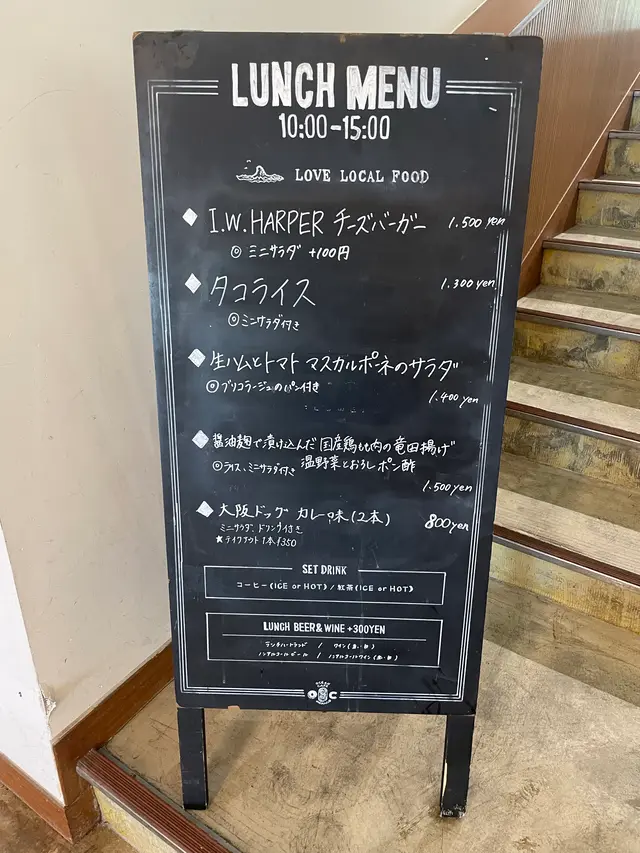 LUNCH MENU
10:00-15:00
LOVE LOCAL FOOD
I.W.HARPER チーズバーガー 1.500 yen
◎ ミニサラダ +100円
タコライス 1.300 yen
◎ ミニサラダ付き
生ハムとトマト マスカルポーネのサラダ
◎ ブリコラージュのパン付き
1.400 yen
醤油麹で漬け込んだ 国産鶏もも肉の竜田揚げ
◎ ライス、ミニサラダ付き 温野菜とおろしポン酢
1.500 yen
大阪ドッグ カレー味(2本) 800yen
ミニサラダ、ドリンク付き
★テイクアウト 1本 ¥350
SET DRINK
コーヒー(ICE or HOT) / 紅茶(ICE or HOT)
LUNCH BEER&WINE +300YEN
/ ワイン(赤・白)
ノンアルコールビール / ノンアルコールワイン(赤・白)